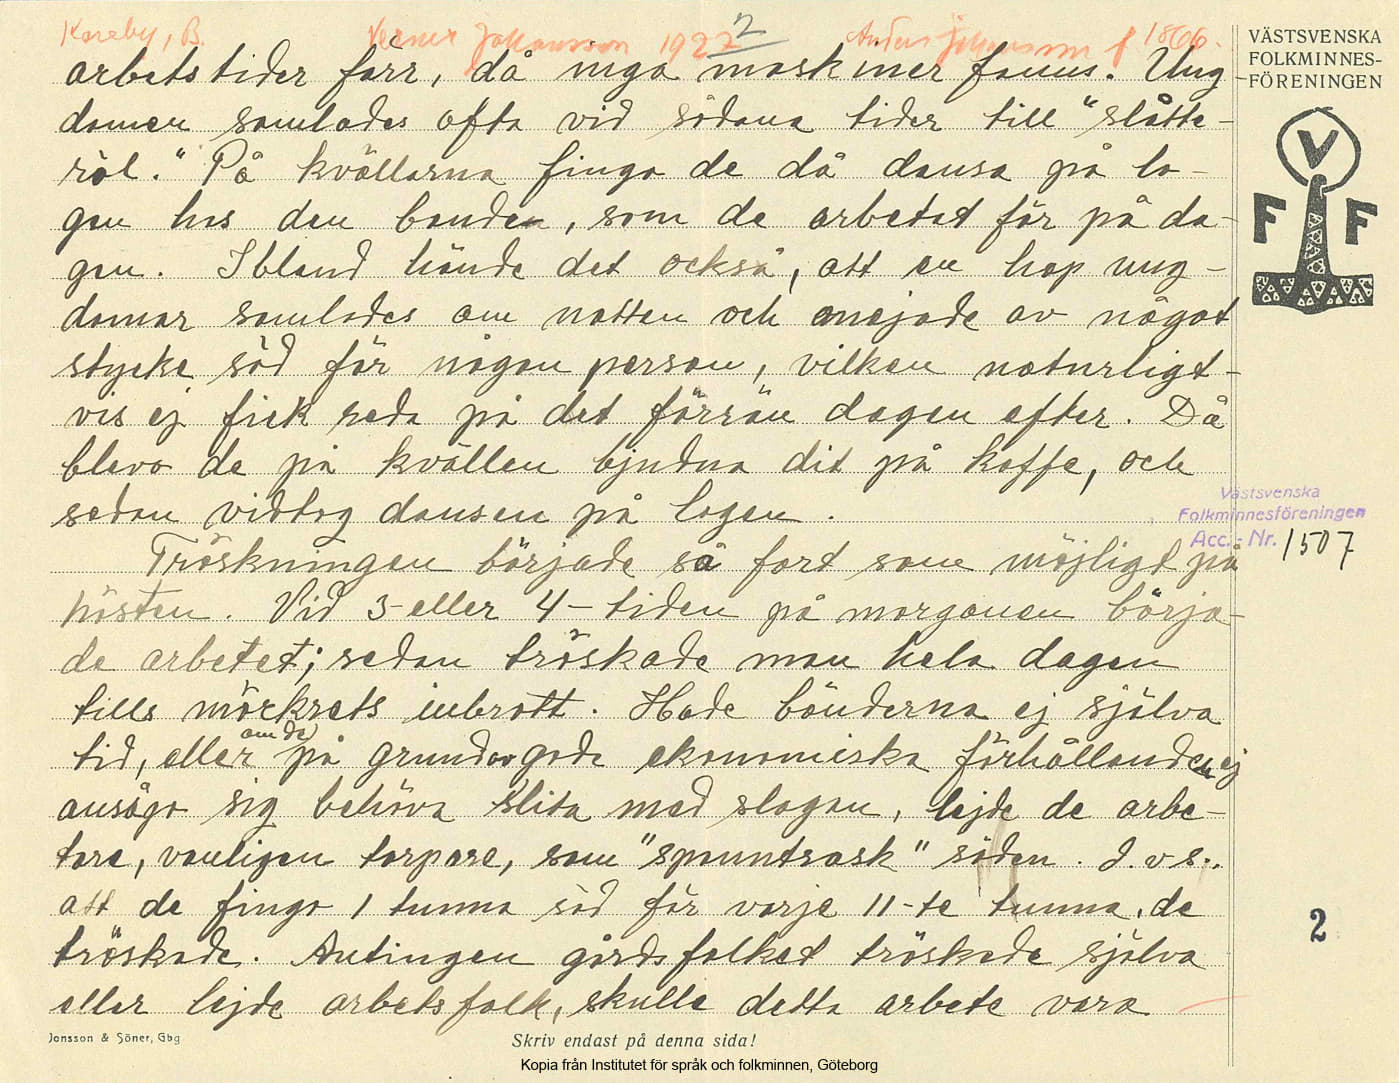 Kareby, B. Verner Johansson 1927 2 Anders Johansson f 1866.
arbetstider förr, då inga maskiner funnos. Ung-
domen samlades ofta vid sådana tider till "slåtte-
röl." På kvällarna fingo de då dansa på lo-
gen hos den bonden, som de arbetat för på da-
gen. Ibland hände det också, att en hop ung-
domar samlades om natten och mejade av något
stycke säd för någon person, vilken naturligt-
vis ej fick reda på det förrän dagen efter. Då
blevo de på kvällen bjudna dit på kaffe, och
sedan vidtog dansen på logen.
Tröskningen började så fort som möjligt på
hösten. Vid 3- eller 4-tiden på morgonen börja-
de arbetet; sedan tröskade man hela dagen
tills mörkrets inbrott. Hade bönderna ej själva
tid, eller om de på grund av goda ekonomiska förhållanden ej
ansågo sig behöva slita med slagan, lejde de arbe-
tare, vanligen torpare, som "spuntrask" säden. D.v.s.,
att de fingo 1 tunna säd för varje 11-te tunna, de
tröskade. Antingen gårdsfolket tröskade själva
eller lejde arbetsfolk, skulle detta arbete vara
VÄSTSVENSKA
FOLKMINNES-
FÖRENINGEN
V
F F
Västsvenska
Folkminnesföreningen
Acc.-Nr. 1507
2
Jonsson & Söner, Gbg
Skriv endast på denna sida!
Kopia från Institutet för språk och folkminnen, Göteborg